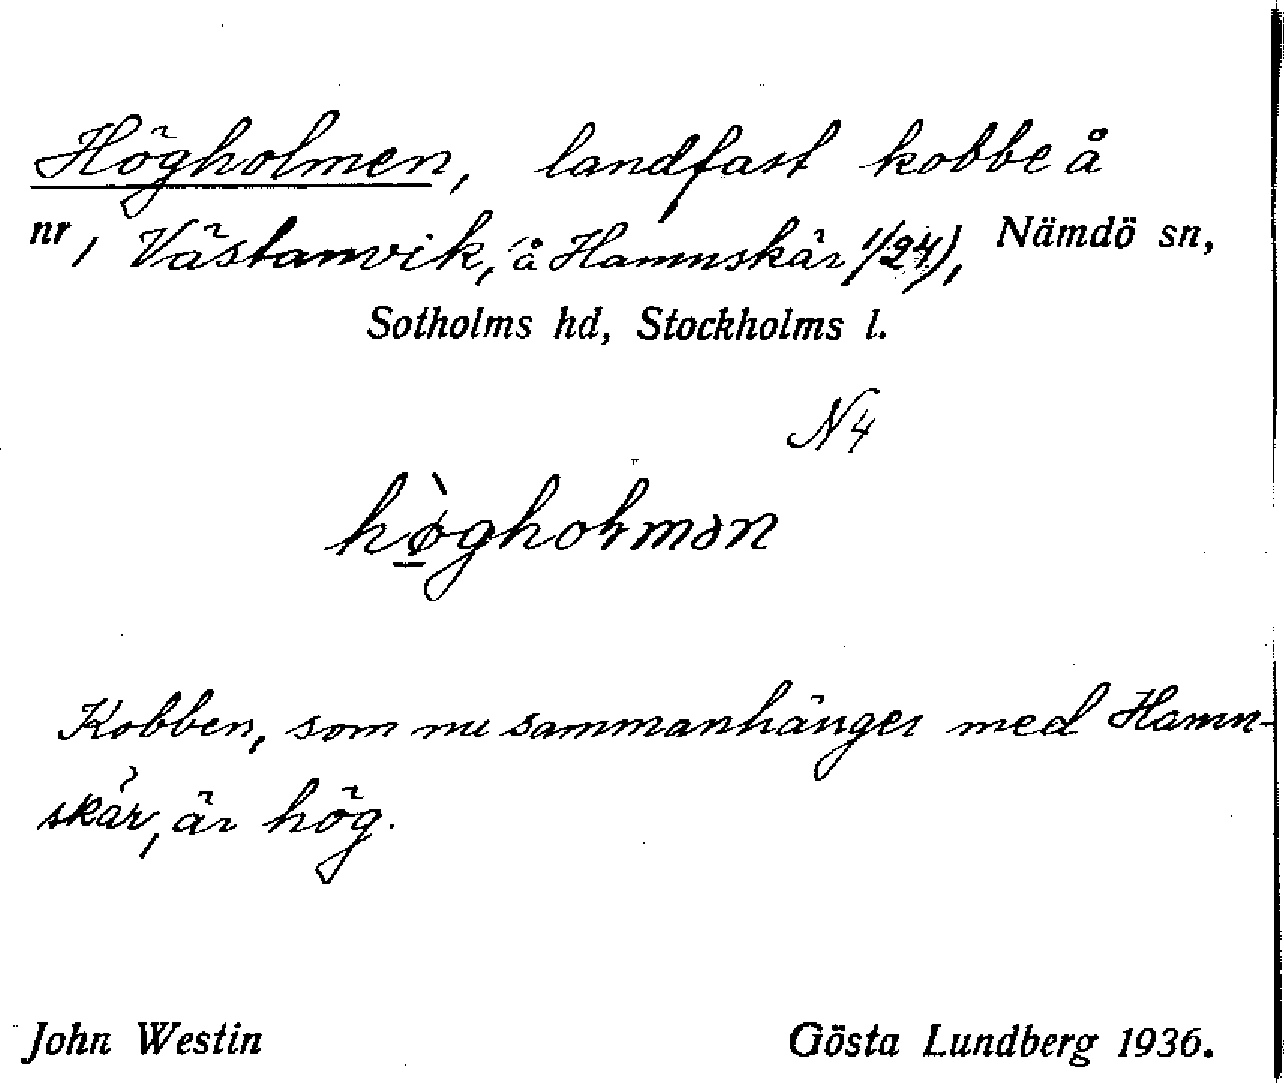 Högholmen, landfast kobbe å
nr, Västanvik, (å Hamnskär 1/24), Nämdö sn,
Sotholms hd, Stockholms l.
N4
hø̀gholmən
Kobben, som nu sammanhänger med Hamn-
skär, är hög.
John Westin Gösta Lundberg 1936.